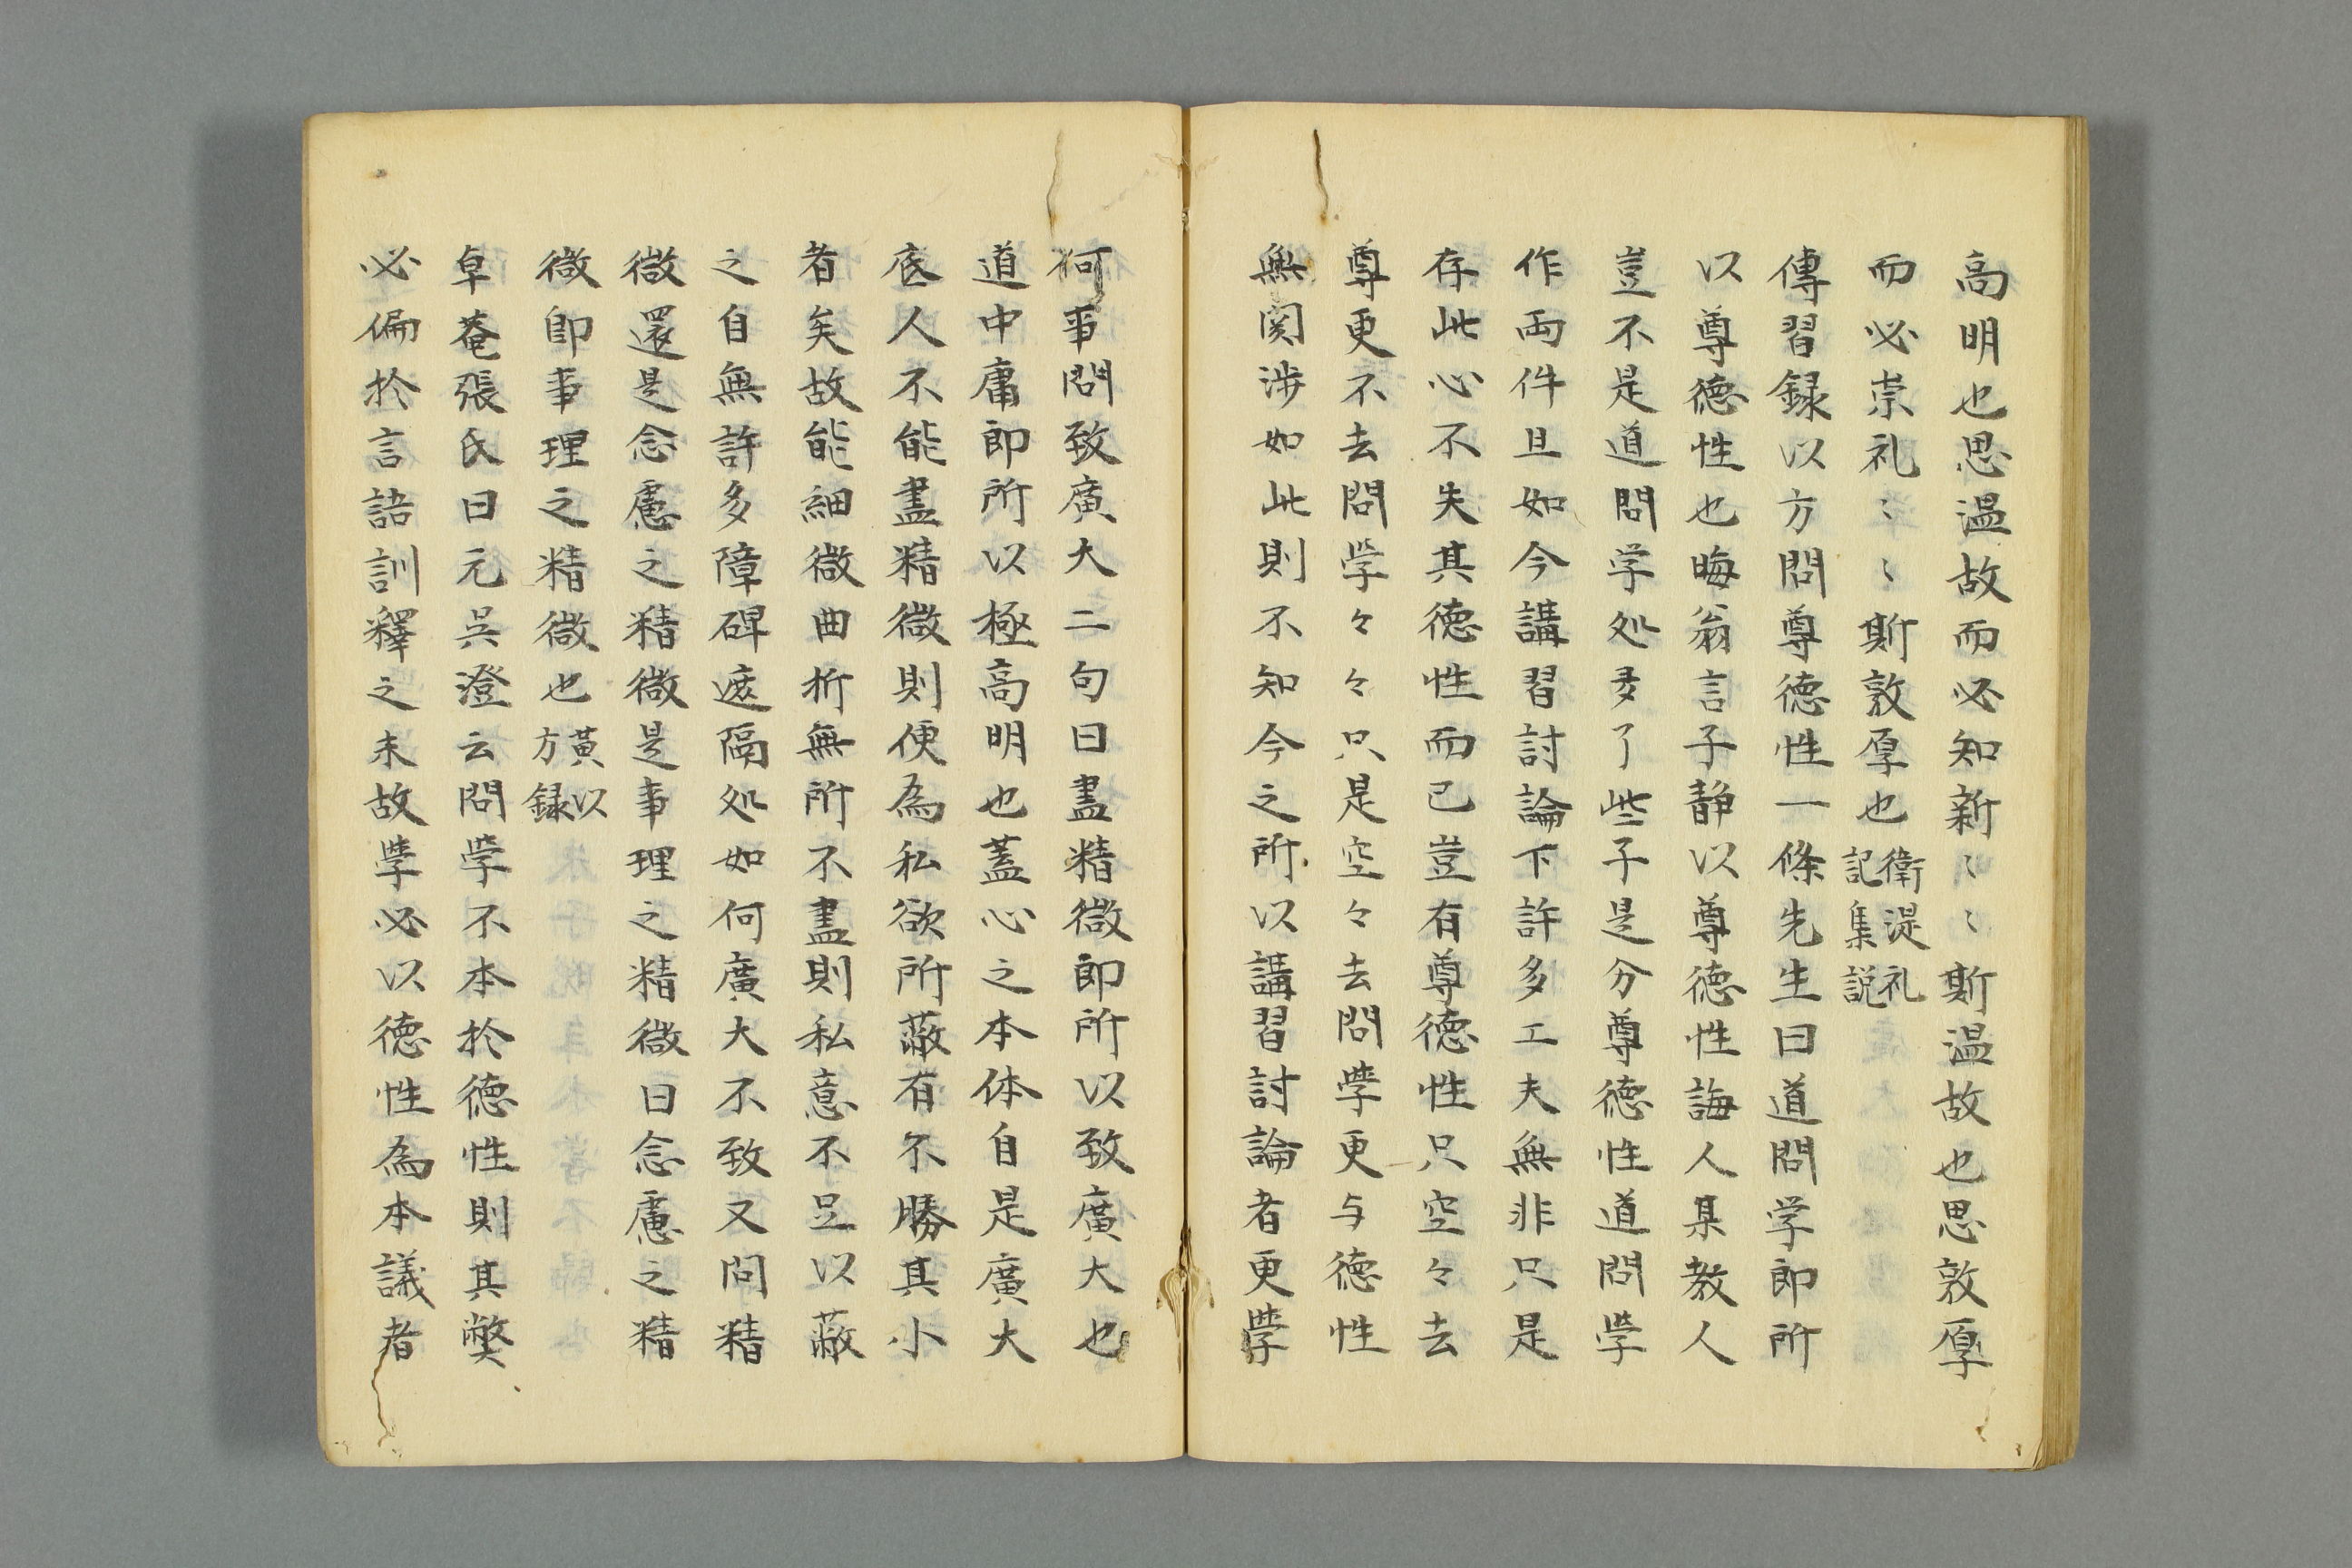 高明也思温故而必知新〻〻斯温故也思敦厚
而必崇礼〻〻斯敦厚也衛湜礼記集説
傳習録以方問尊徳性一條先生曰道問学即所
以尊徳性也晦翁言子静以尊徳性誨人某教人
豈不是道問学処多了些子是分尊徳性道問學
作両件且如今講習討論下許多工夫無非只是
存此心不失其徳性而已豈有尊徳性只空々去
尊更不去問学々々只是空々去問學更与徳性
無関渉如此則不知今之所以講習討論者更學
何事問致廣大二句曰盡精微即所以致廣大也
道中庸即所以極高明也蓋心之本体自是廣大
底人不能盡精微則便為私欲所蔽有不勝其小
者矣故能細微曲折無所不盡則私意不足以蔽
之自無許多障碍遮隔処如何廣大不致又问精
微還是念慮之精微是事理之精微曰念慮之精
微即事理之精微也黄以方録
卓菴張氏曰元呉澄云問學不本於徳性則其弊
必偏於言語訓釋之末故學必以徳性為本議者